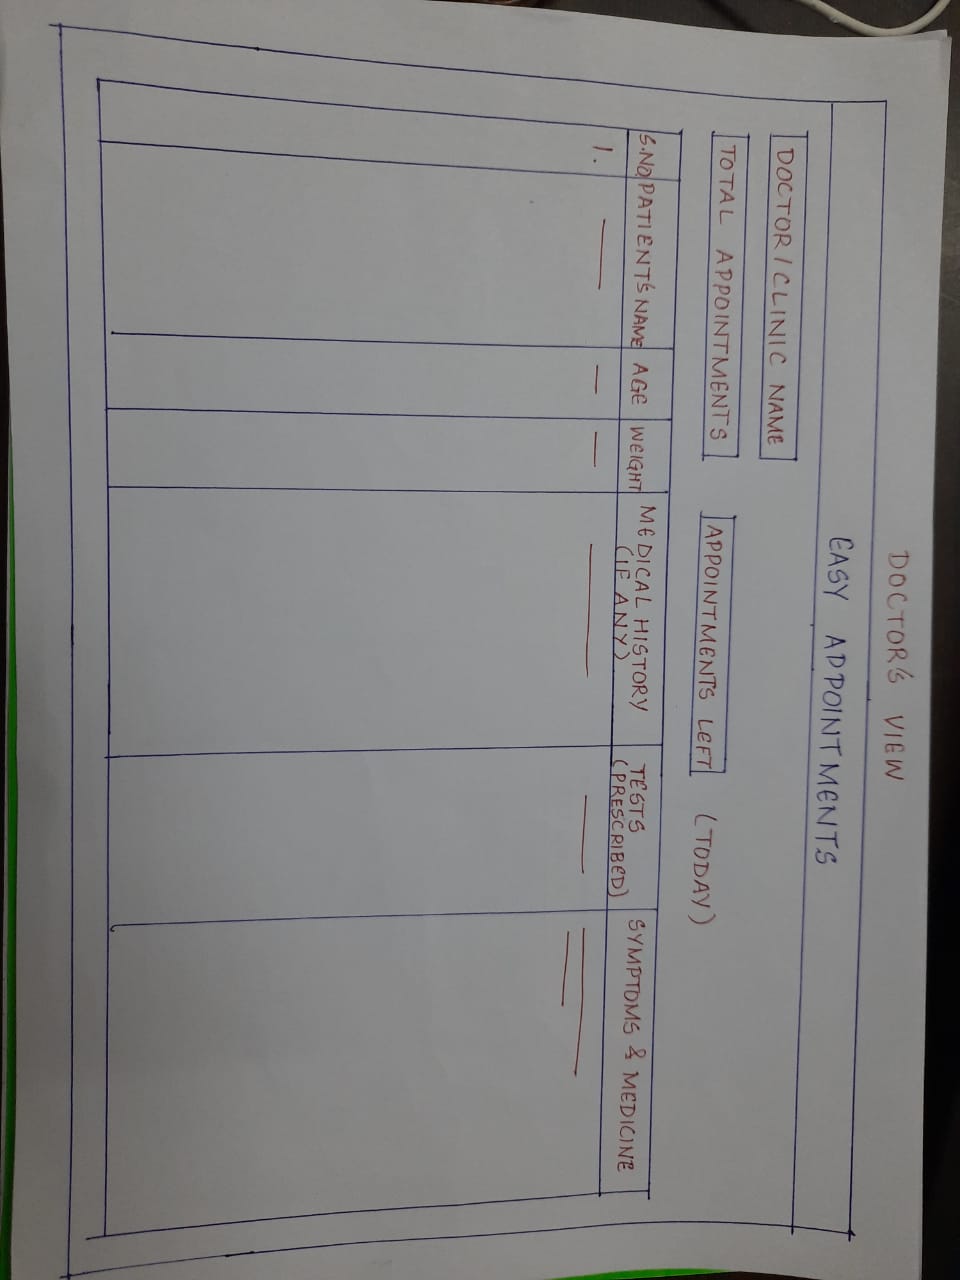 DOCTOR'S VIEW
EASY APPOINTMENTS
DOCTOR/CLINIC NAME
TOTAL APPOINTMENTS APPOINTMENTS LEFT (TODAY)
S.NO. PATIENT'S NAME AGE WEIGHT MEDICAL HISTORY (IF ANY) TESTS (PRESCRIBED) SYMPTOMS & MEDICINE
1.